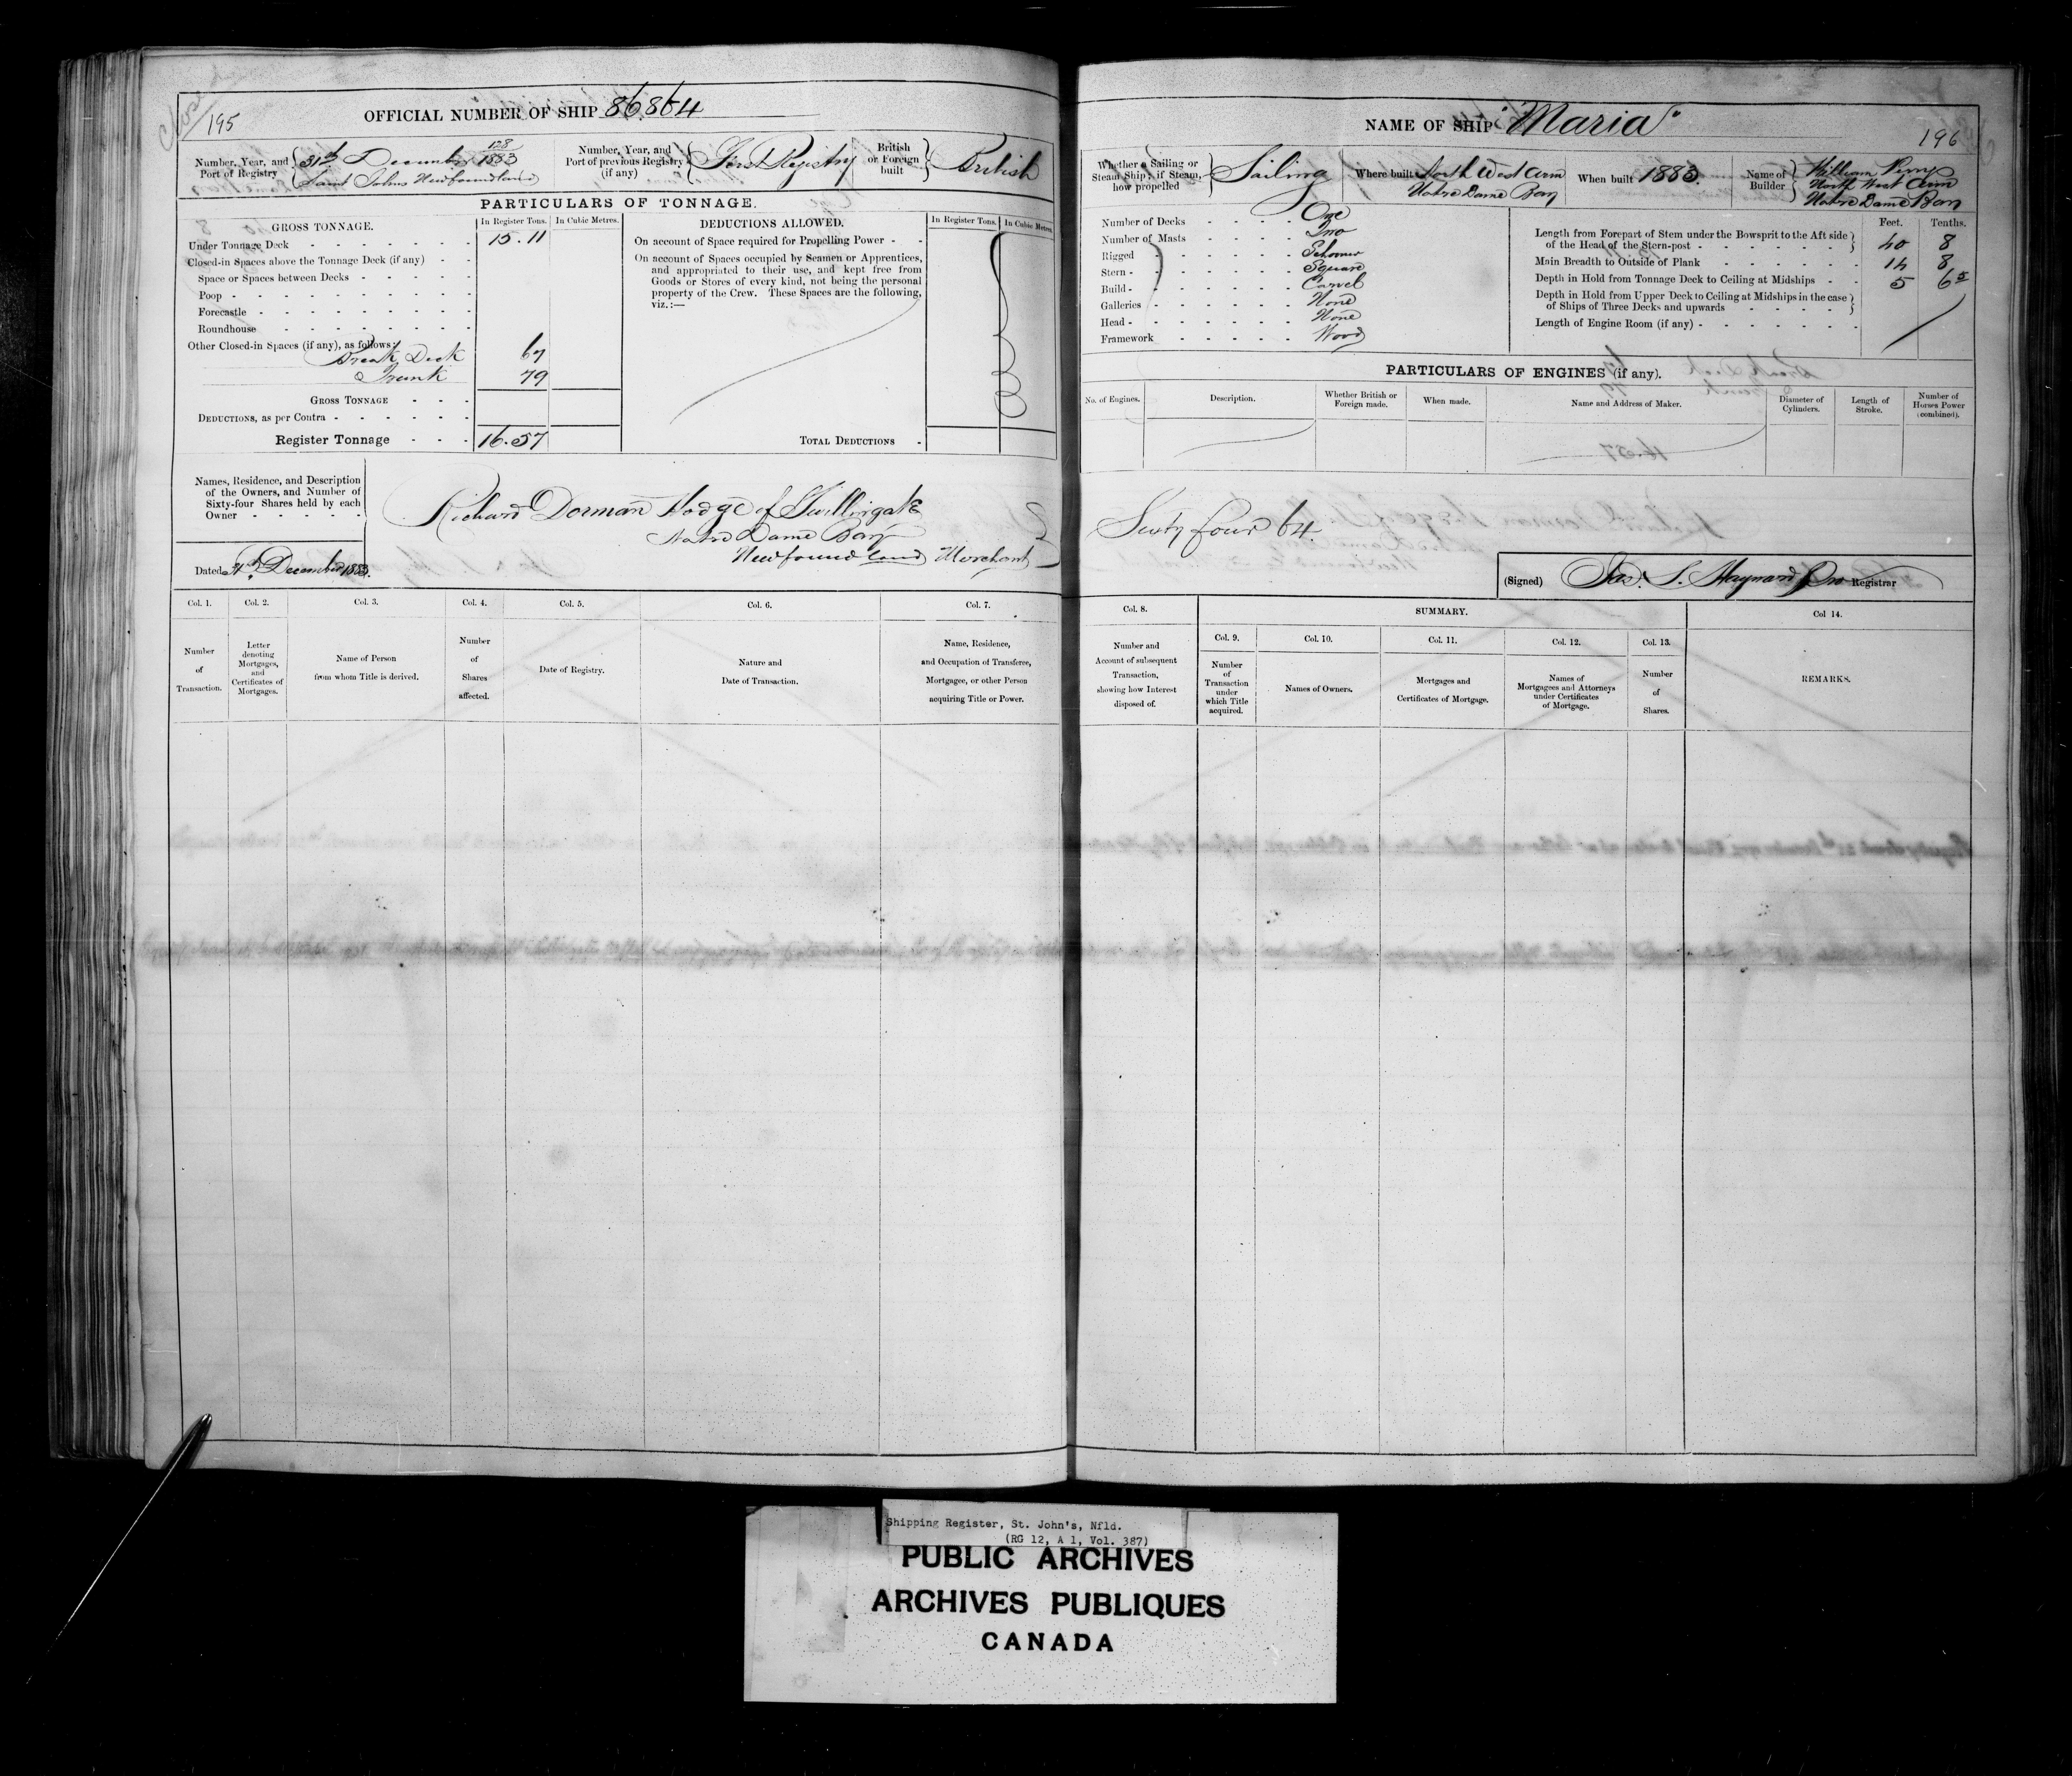 195
OFFICIAL NUMBER OF SHIP 86.864
Number, Year, and Port of Registry
128
31st December 1883
Saint Johns Newfoundland
Number, Year, and Port of previous Registry (if any)
First Registry
British or Foreign built
British
PARTICULARS OF TONNAGE.
GROSS TONNAGE.
In Register Tons.
In Cubic Metres.
Under Tonnage Deck 15.11
Closed-in Spaces above the Tonnage Deck (if any)
Space or Spaces between Decks
Poop
Forecastle
Roundhouse
Other Closed-in Spaces (if any), as follows:
Break Deck 67
Trunk 79
GROSS TONNAGE
DEDUCTIONS, as per Contra
Register Tonnage 16.57
DEDUCTIONS ALLOWED.
In Register Tons.
In Cubic Metres.
On account of Space required for Propelling Power
On account of Spaces occupied by Seamen or Apprentices,
and appropriated to their use, and kept free from
Goods or Stores of every kind, not being the personal
property of the Crew. These Spaces are the following,
viz.:—
TOTAL DEDUCTIONS
Names, Residence, and Description
of the Owners, and Number of
Sixty-four Shares held by each
Owner
Richard Dorman Hodge of Twillingate
Notre Dame Bay
Newfoundland Merchant
Dated 31st December 1883.
Col. 1.
Number of Transaction.
Col. 2.
Letter denoting Mortgages, and Certificates of Mortgages.
Col. 3.
Name of Person from whom Title is derived.
Col. 4.
Number of Shares affected.
Col. 5.
Date of Registry.
Col. 6.
Nature and Date of Transaction.
Col. 7.
Name, Residence, and Occupation of Transferee, Mortgagee, or other Person acquiring Title or Power.
NAME OF SHIP "Maria"
196
Whether a Sailing or Steam Ship; if Steam, how propelled
Sailing
Where built North West Arm
Notre Dame Bay
When built 1883.
Name of Builder
William Perry
North West Arm
Notre Dame Bay
Number of Decks One
Number of Masts Two
Rigged Schooner
Stern Square
Build Carvel
Galleries None
Head None
Framework Wood
Feet. Tenths.
Length from Forepart of Stem under the Bowsprit to the Aft side
of the Head of the Stern-post 40 8
Main Breadth to Outside of Plank 14 8
Depth in Hold from Tonnage Deck to Ceiling at Midships 5 65
Depth in Hold from Upper Deck to Ceiling at Midships in the case
of Ships of Three Decks and upwards
Length of Engine Room (if any)
PARTICULARS OF ENGINES (if any).
No. of Engines.
Description.
Whether British or Foreign made.
When made.
Name and Address of Maker.
Diameter of Cylinders.
Length of Stroke.
Number of Horses Power (combined).
Sixty four 64.
(Signed) Jas. S. Hayward Pro Registrar
Col. 8.
Number and Account of subsequent Transaction, showing how Interest disposed of.
SUMMARY.
Col. 9.
Number of Transaction under which Title acquired.
Col. 10.
Names of Owners.
Col. 11.
Mortgages and Certificates of Mortgage.
Col. 12.
Names of Mortgagees and Attorneys under Certificates of Mortgage.
Col. 13.
Number of Shares.
Col 14.
REMARKS.
Shipping Register, St. John's, Nfld.
(RG 12, A 1, Vol. 387)
PUBLIC ARCHIVES
ARCHIVES PUBLIQUES
CANADA